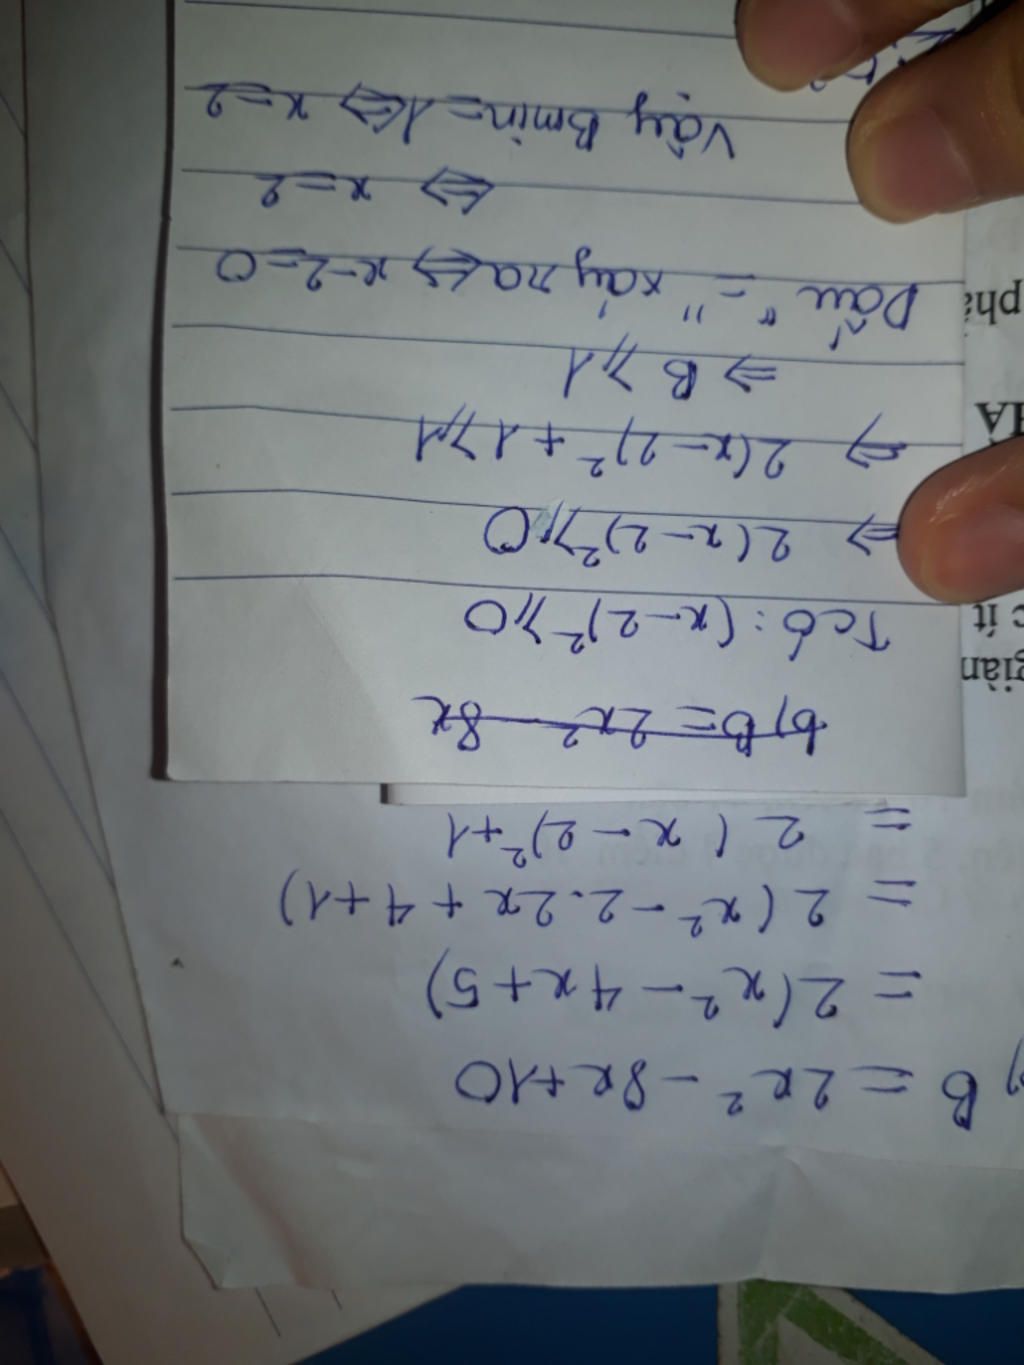 B = 2x² - 8x + 10
= 2(x² - 4x + 5)
= 2(x² - 2.2x + 4 + 1)
= 2(x - 2)² + 1
b) B = 2x² 8x
Tcó: (x - 2)² ⩾ 0
⇒ 2(x - 2)² ⩾ 0
⇒ 2(x - 2)² + 1 ⩾ 1
⇒ B ⩾ 1
Dấu "=" xảy ra ⇔ x - 2 = 0
⇔ x = 2
Vậy Bmin = 1 ⇔ x = 2
giản
c ít
HÁ